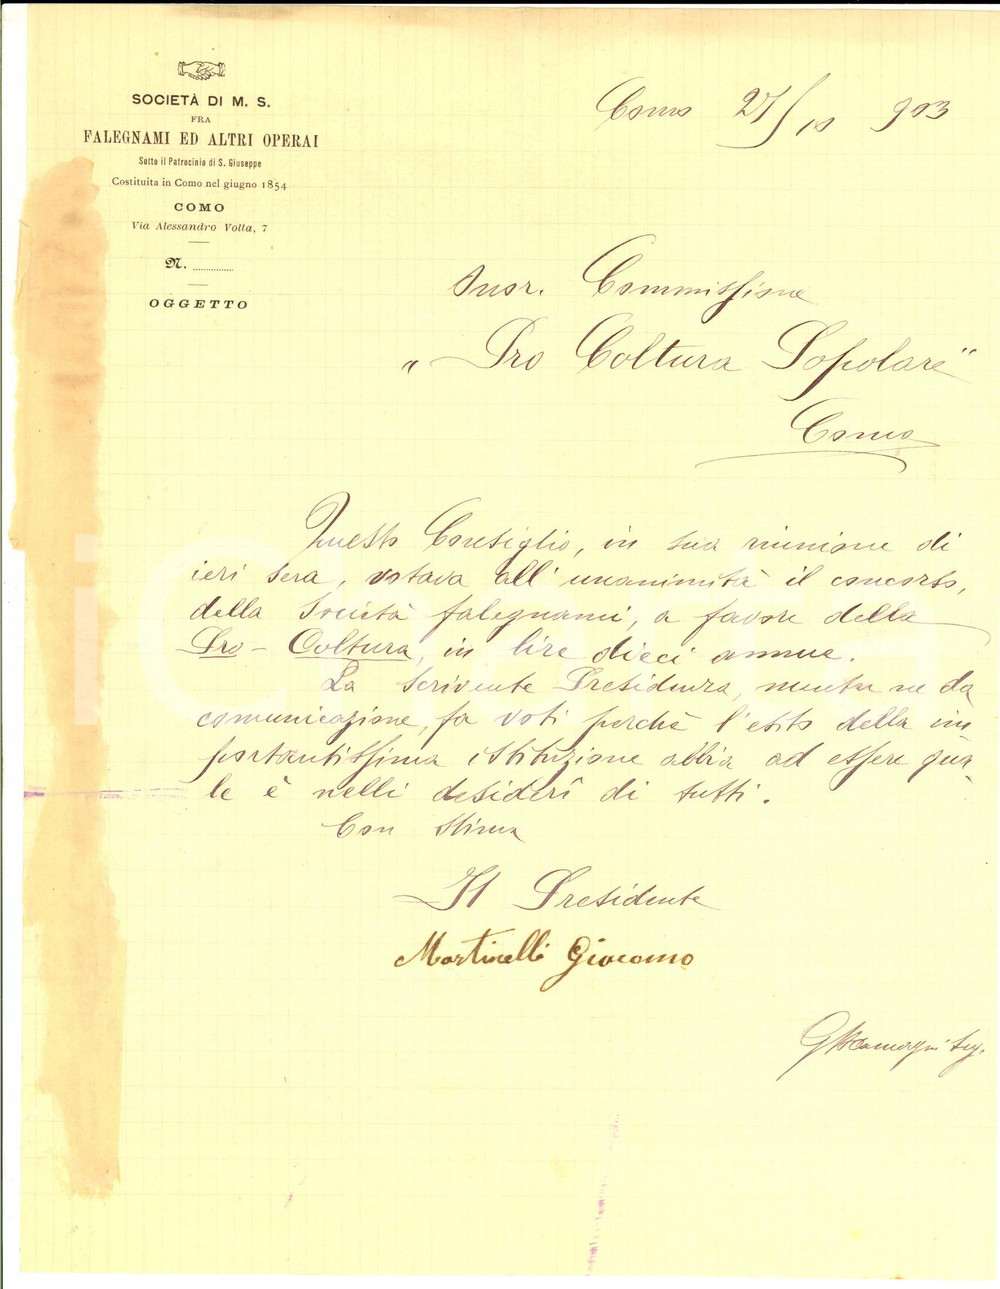 SOCIETÀ DI M. S.
FRA
FALEGNAMI ED ALTRI OPERAI
Sotto il Patrocinio di S. Giuseppe
Costituita in Como nel giugno 1854
COMO
Via Alessandro Volta, 7
N. ...............
OGGETTO
Como 27/10 903
Onor. Commissione
"Pro Coltura Popolare"
Como
Questo Consiglio, in sua riunione di
ieri sera, votava all'unanimità il concorso,
della Società falegnami, a favore della
Pro-Coltura, in lire dieci annue.
La scrivente Presidenza, mentre ne da
comunicazione, fa voti perchè l'esito della im-
portantissima istituzione abbia ad essere qua-
le è nelli desiderî di tutti.
Con stima
Il Presidente
Martinelli Giacomo